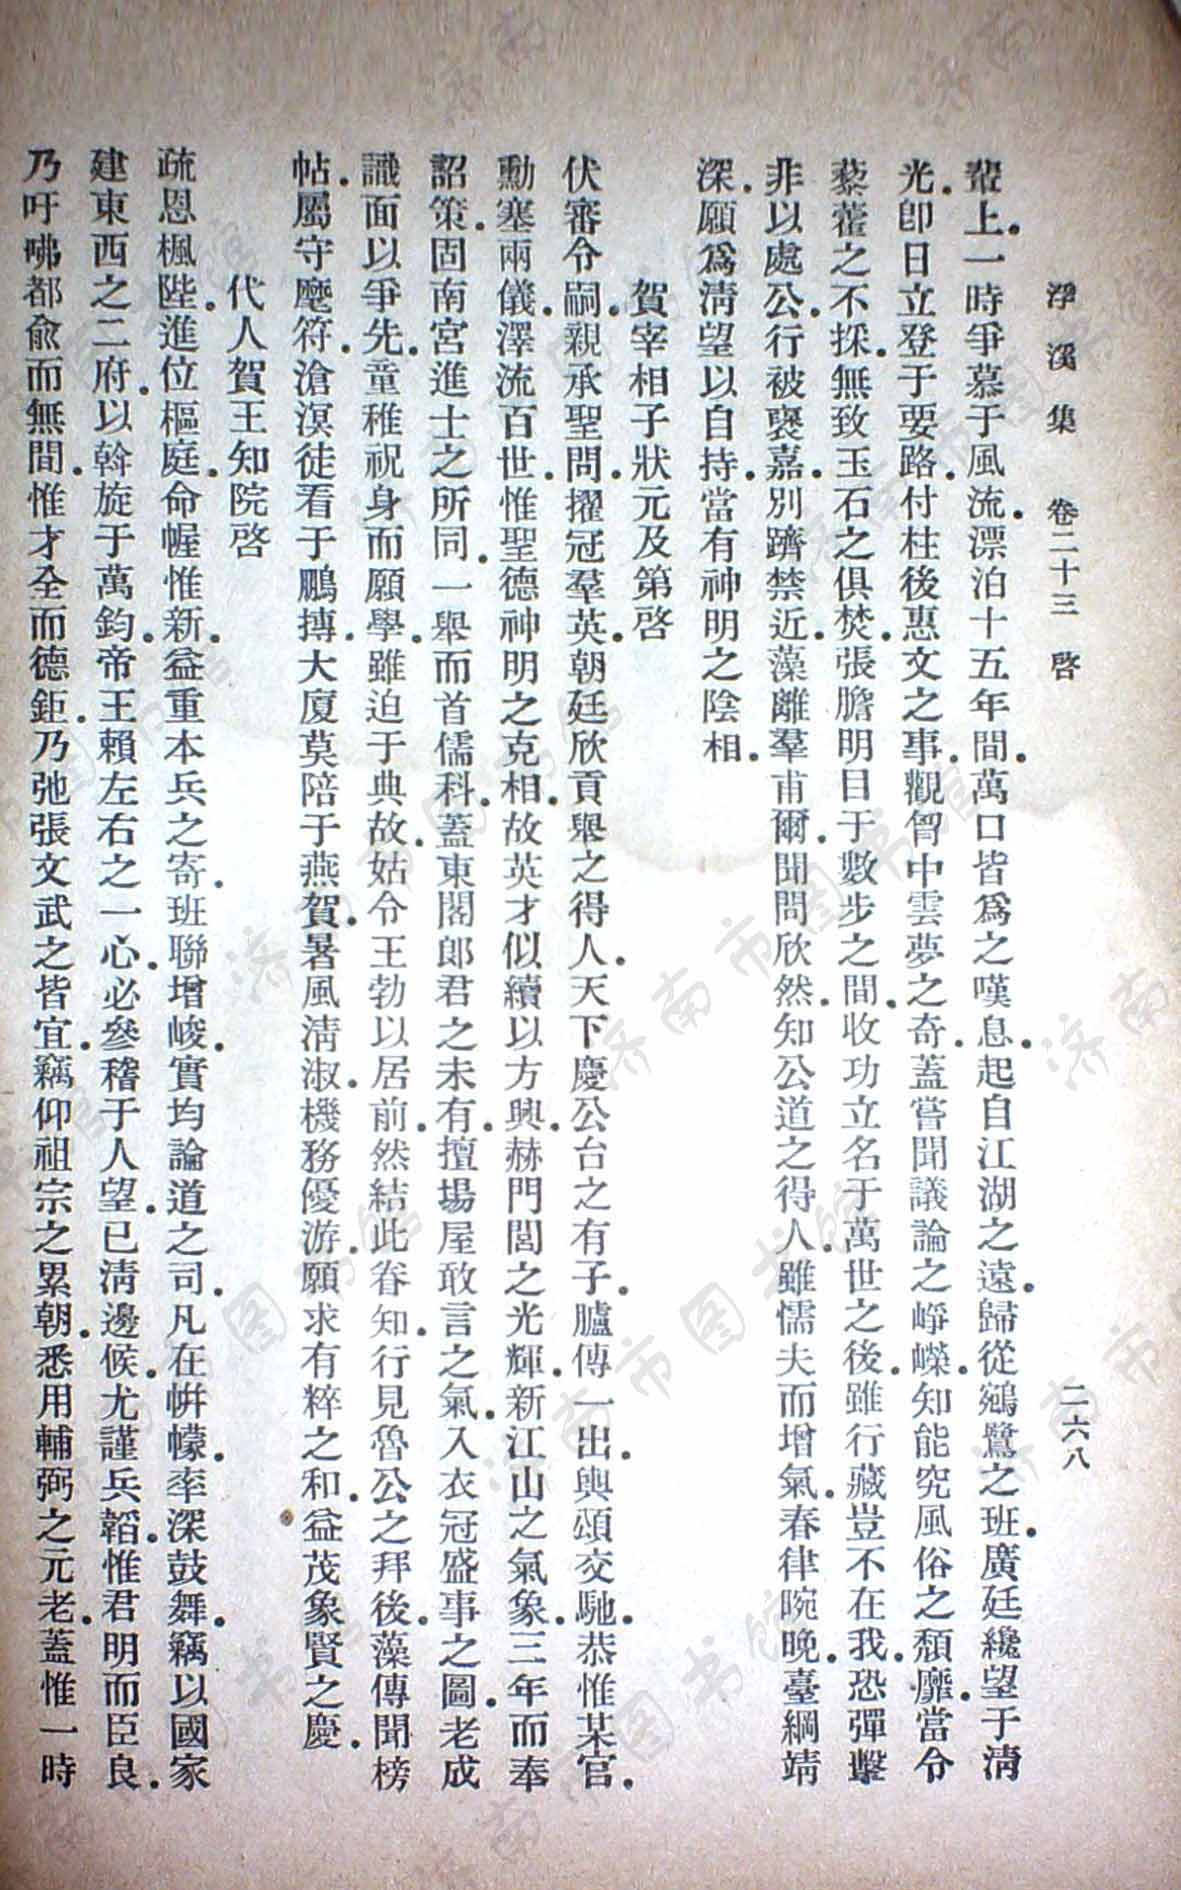 浮溪集　卷二十三　啓　二六八
輩上．一時爭慕于風流．漂泊十五年間．萬口皆爲之嘆息．起自江湖之遠．歸從鵷鷺之班．廣廷纔望于清
光．卽日立登于要路．付柱後惠文之事．觀胷中雲夢之奇．蓋嘗聞議論之崢嶸．知能究風俗之頹靡．當令
藜藿之不採．無致玉石之俱焚．張膽明目于數步之間．收功立名于萬世之後．雖行藏豈不在我．恐彈擊
非以處公．行被褒嘉．別躋禁近．藻離羣甫爾．聞問欣然．知公道之得人．雖懦夫而增氣．春律晼晚．臺綱靖
深．願爲清望以自持．當有神明之陰相．
賀宰相子狀元及第啓
伏審令嗣．親承聖問．擢冠羣英．朝廷欣貢舉之得人．天下慶公台之有子．臚傳一出．輿頌交馳．恭惟某官．
勳塞兩儀．澤流百世．惟聖德神明之克相．故英才似續以方興．赫門閭之光輝．新江山之氣象．三年而奉
詔策．固南宮進士之所同．一舉而首儒科．蓋東閣郎君之未有．擅場屋敢言之氣．入衣冠盛事之圖．老成
識面以爭先．童稚祝身而願學．雖迫于典故．姑令王勃以居前．然結此眷知．行見魯公之拜後．藻傳聞榜
帖．屬守麾符．滄溟徒看于鵬摶．大廈莫陪于燕賀．暑風清淑．機務優游．願求有粹之和．益茂象賢之慶．
代人賀王知院啓
疏恩楓陛．進位樞庭．命幄惟新．益重本兵之寄．班聯增峻．實均論道之司．凡在帡幪．率深鼓舞．竊以國家
建東西之二府．以斡旋于萬鈞．帝王賴左右之一心．必參稽于人望．已清邊候．尤謹兵韜．惟君明而臣良．
乃吁咈都俞而無間．惟才全而德鉅．乃弛張文武之皆宜．竊仰祖宗之累朝．悉用輔弼之元老．蓋惟一時